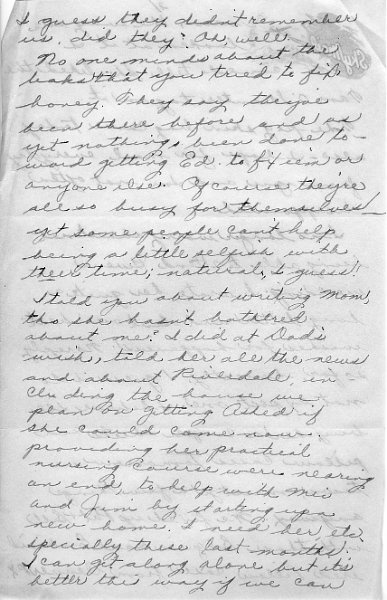 I guess they didn't remember
us, did they? Oh, well.
No one minds about the
leaks that you tried to fix
honey. They say they've
been there before and as
yet nothing's been done to-
ward getting Ed. to fix 'em or
anyone else. Of course they're
all so busy for themselves!
yet some people can't help
being a little selfish with
their time; natural, I guess!!
I told you about writing Mom,
tho she hasn't bothered
about me. I did at Dad's
wish, told her all the news
and about Riverdale, in
cluding the house we
plan on getting Asked if
she could come now.
providing her practical
nursing course were nearing
an end, to help with me
and Jim by starting up a
new home. I need her etc
specially these last months.
I can get along alone but it's
better this way if we can